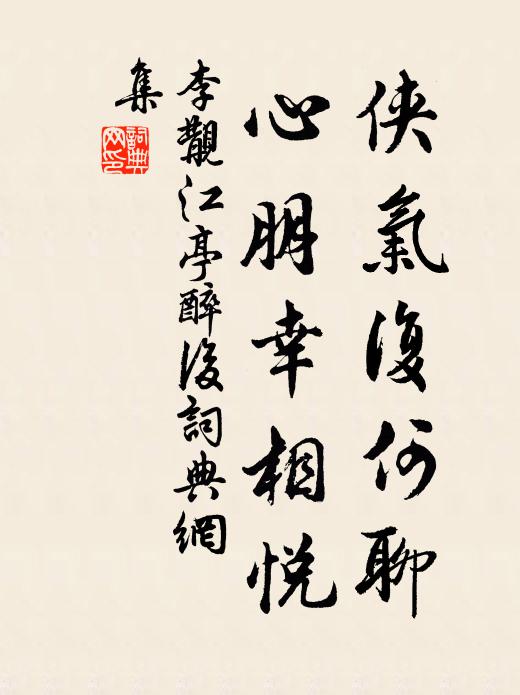 俠氣復何聊
心朋幸相悅
李覯江亭醉後詞典網
集
詞典網印